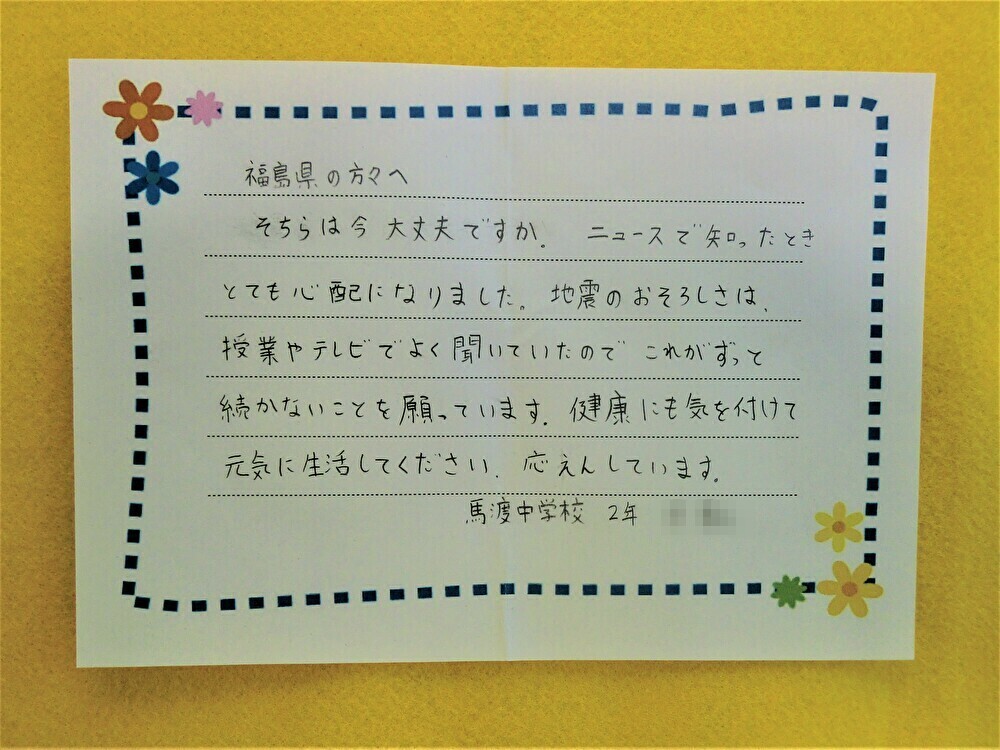 福島県の方々へ
そちらは今大丈夫ですか。ニュースで知ったとき
とても心配になりました。地震のおそろしさは、
授業やテレビでよく聞いていたのでこれがずっと
続かないことを願っています。健康にも気を付けて
元気に生活してください。応えんしています。
馬渡中学校 2年